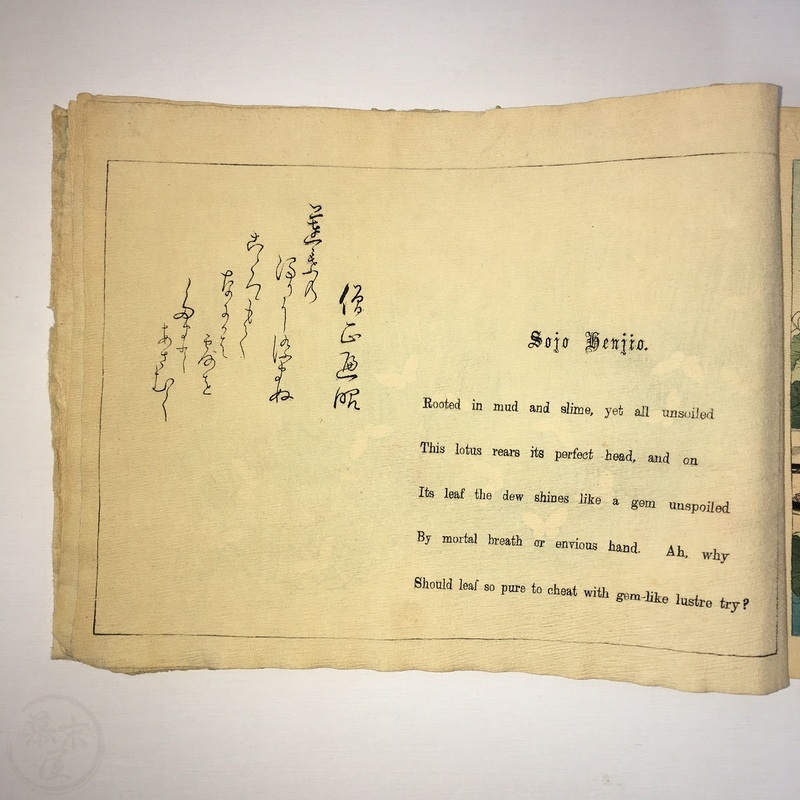 僧正遍昭
蓮葉乃
濁りにしまぬ
こゝろもて
なにかは
露を
たまと
あさむく
Sojo Henjio.
Rooted in mud and slime, yet all unsoiled
This lotus rears its perfect head, and on
Its leaf the dew shines like a gem unspoiled
By mortal breath or envious hand. Ah, why
Should leaf so pure to cheat with gem-like lustre try?
幕末屋